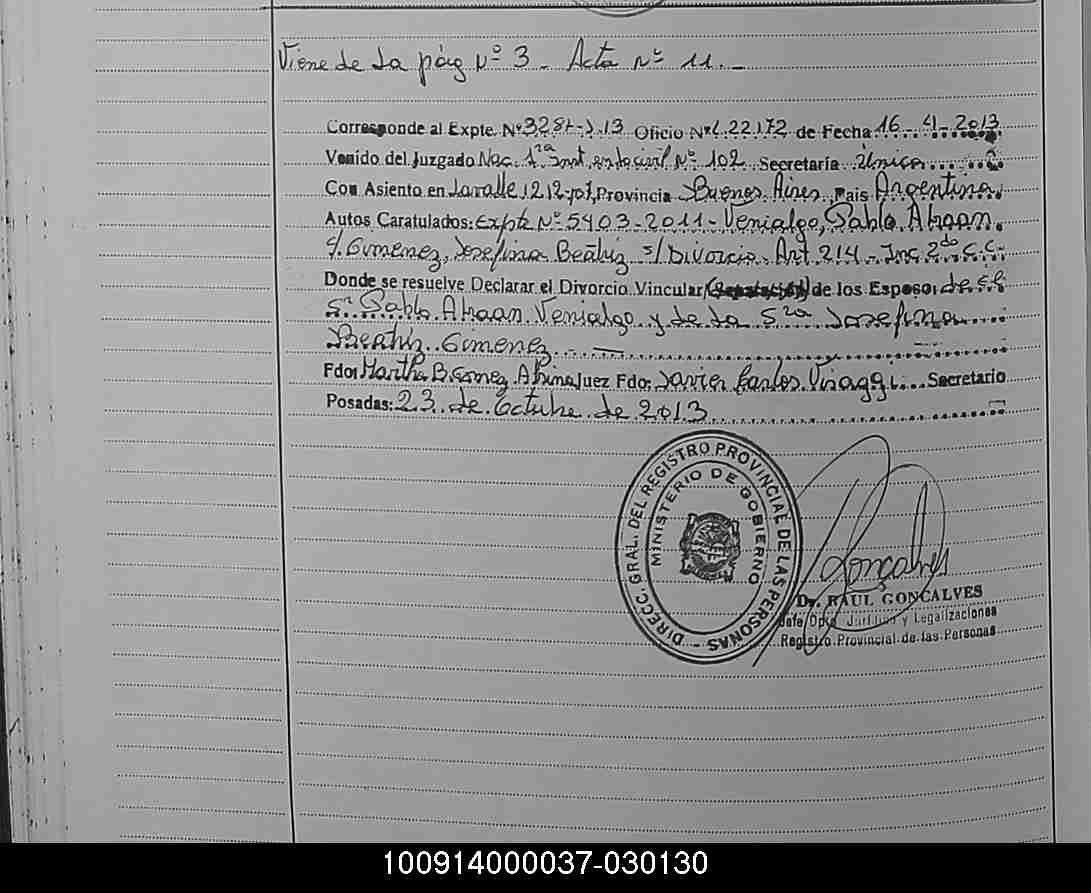 Viene de la pág Nº 3 - Acta Nº 11.-
Corresponde al Expte. Nº 328 - 13 Oficio Nº 22.172 de Fecha 16 - 4 - 2013
Venido del Juzgado Nac. 1ra Inst. en lo civil Nº 102 Secretaría Única
Con Asiento en Lavalle 1212 Provincia Buenos Aires, Pais Argentina
Autos Caratulados: Expte Nº 5403-2011 - Venialgo, Pablo
Gimenez, Josefina Beatriz s/ Divorcio. Art. 214 - Inc 2do C.C.
Donde se resuelve Declarar el Divorcio Vincular de los Esposos del
Sr Pablo Venialgo y de la Sra Josefina
Beatriz Gimenez
Fdo: Martha B. Gomez Juez Fdo: Javier Carlos Visaggi Secretario
Posadas: 23 de Octubre de 2013
DIRECC. GRAL. DEL REGISTRO PROVINCIAL DE LAS PERSONAS -
MINISTERIO DE GOBIERNO
Gonçalves
Dr. RAUL GONCALVES
Jefe Dpto. Jurídico y Legalizaciones
Registro Provincial de las Personas
100914000037-030130